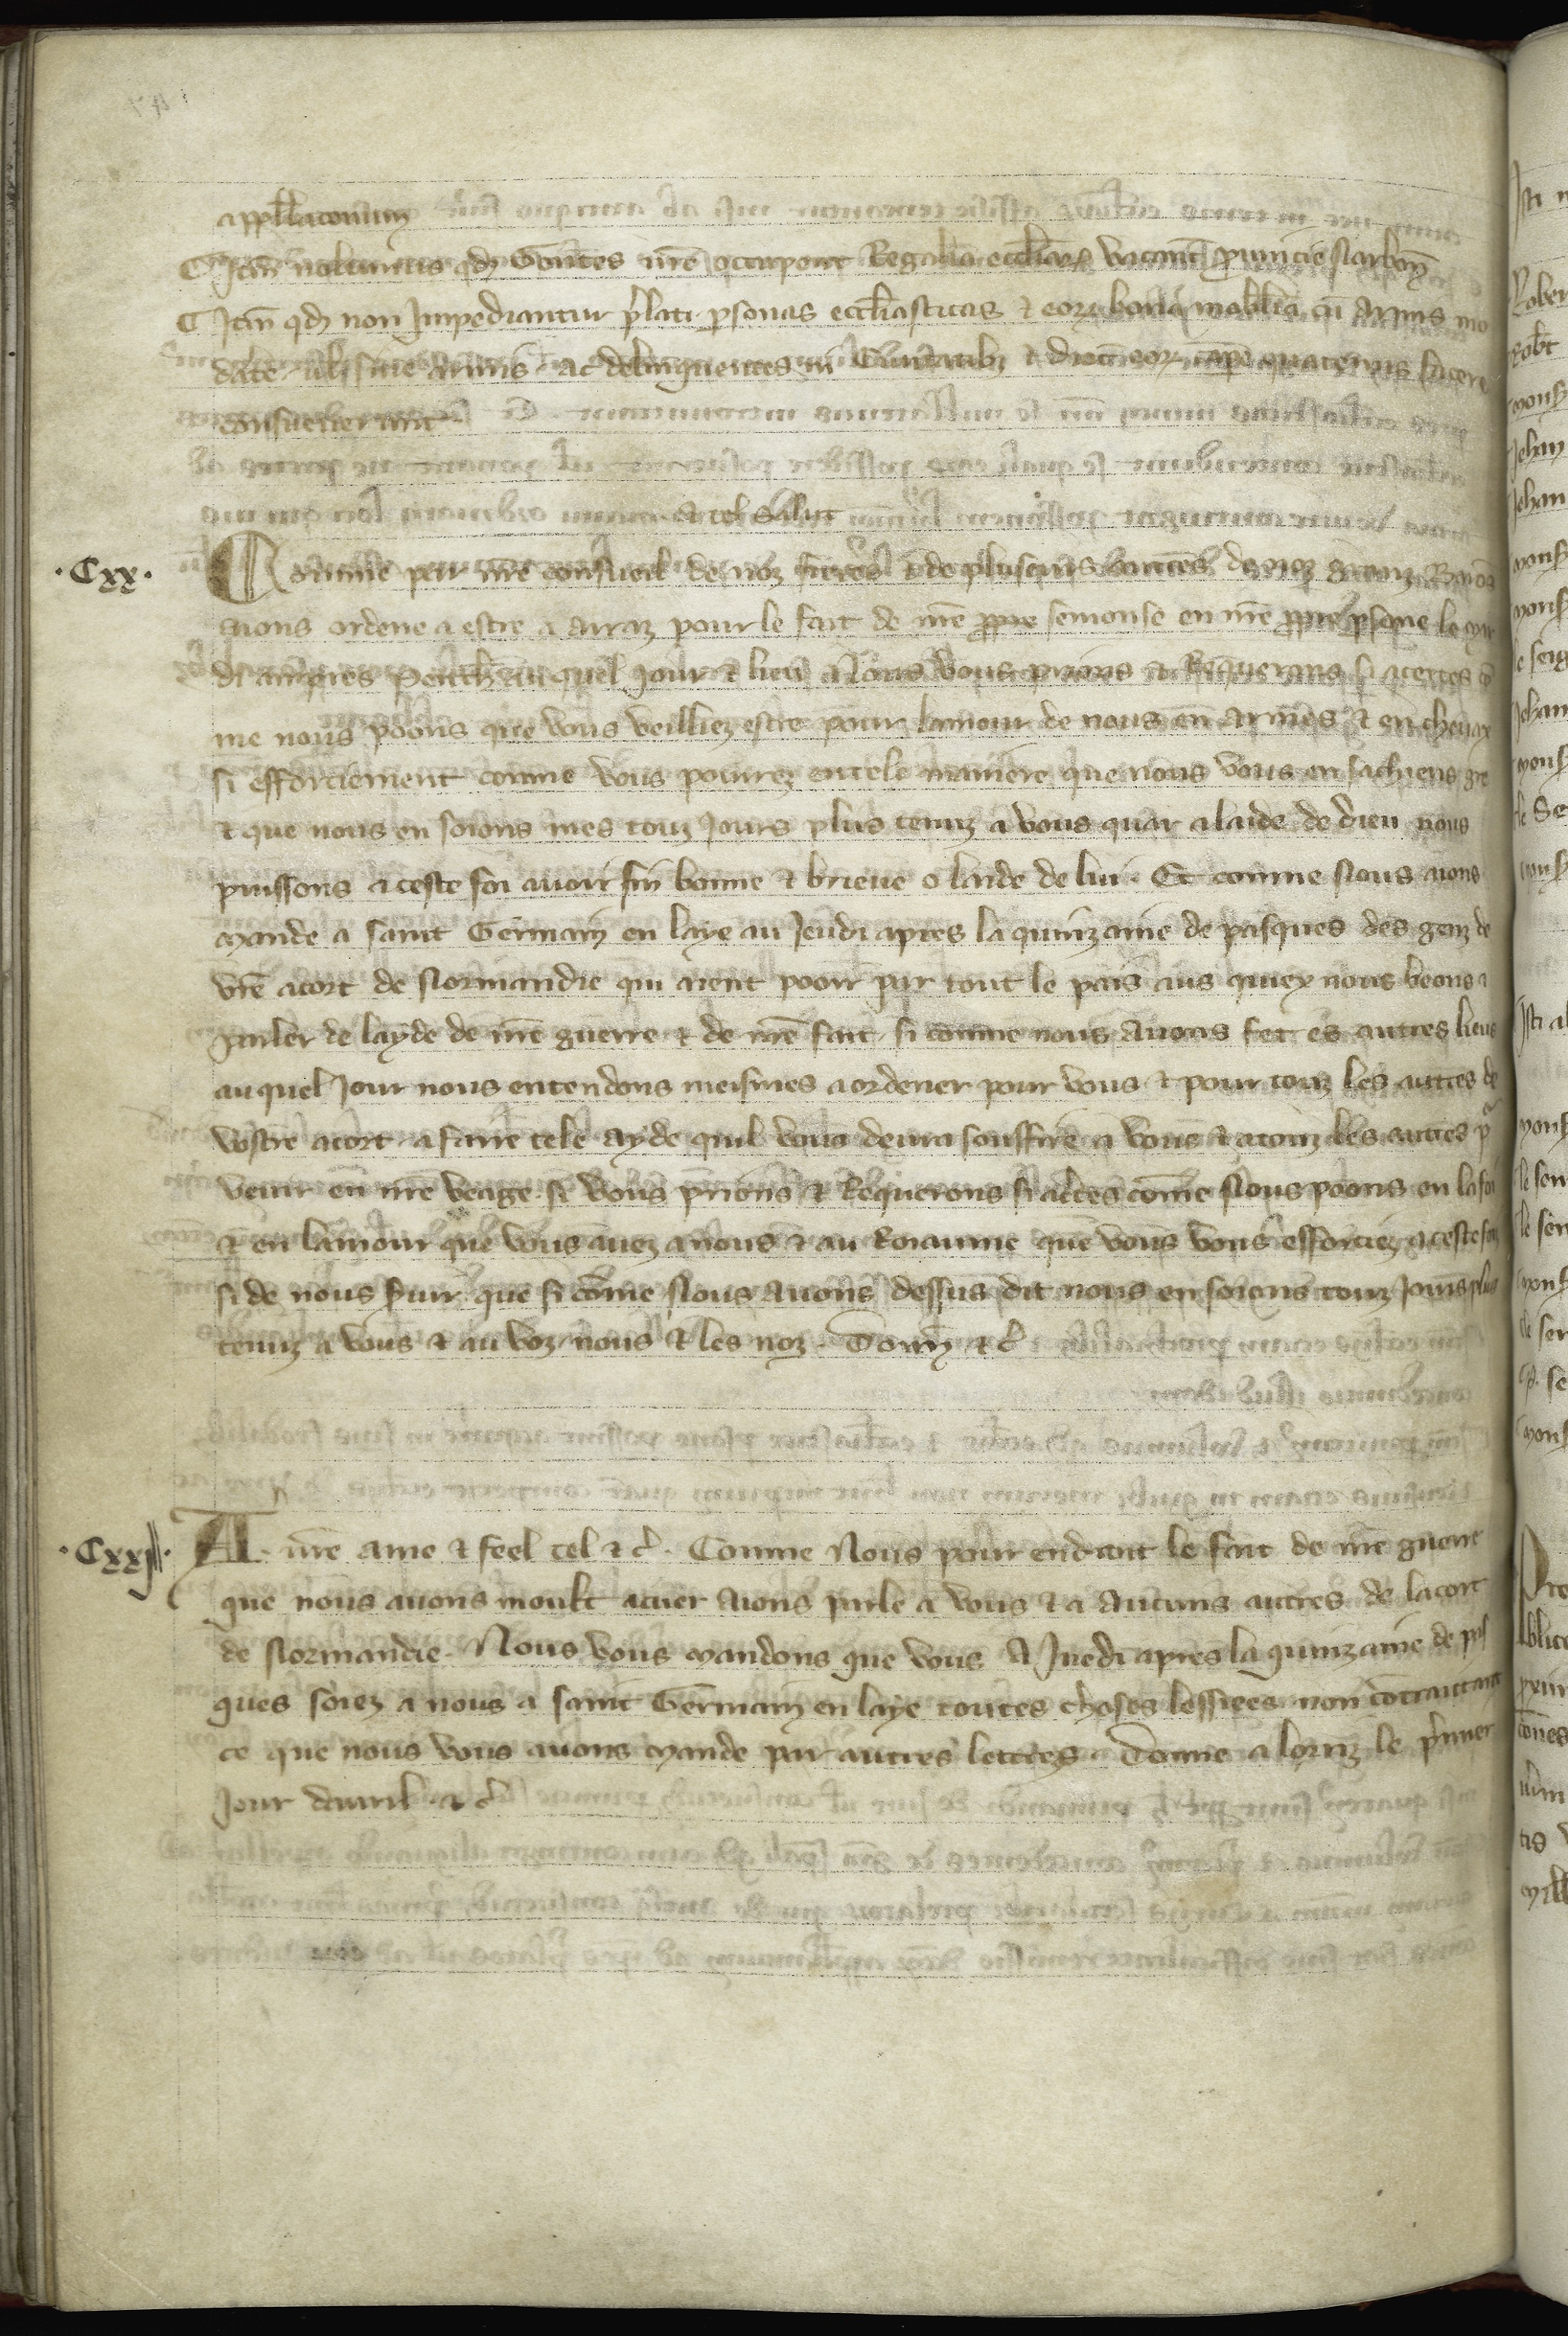 appell̃acionum
¶ Itm̃ nolumus qd̃ Gentes nr̃e occupent Regalia eccl̃iaꝝ vacanc̃ prouincie Narbon̄
¶ Itm̃ qd̃ non Impediantur p̃lati psonas eccl̃iasticas ⁊ eoꝝ bona mobilia cũ armis mo
derate uł sine armis ac delinquentes in Ciuitatibꝫ ⁊ dioc̃ eoꝝ cape quatenus facere
consueuerunt
A tel salut
·Cxx·
Comme par nr̃e conseil de noz freres ⁊ de plusieurs autres de noz genz
auons ordene a estre a Arraz pour le fait de nr̃e ppre semonse en nr̃e ppre psone le
di ampres Penth̃ au quel jour ⁊ lieu Nous vous prions ⁊ Requerons si acertes cõ
me nous poons que vous veilliez estre pour lamour de nous en armes ⁊ en cheuax
si efforciement comme vous pourrez en tele maniere que nous vous en sachiens gre
⁊ que nous en soions mes touz jours plus tenuz a vous quar a laide de dieu nous
puissons a ceste foi auoir fin bonne ⁊ brieue o laide de lui. Et comme Nous auons
mande a saint Germain en laye au Jeudi apres la quinzaine de pasques des genz de
vr̃e acort de Normandie qui aient pooir par tout le pais aus quiex nous beons a
parler de layde de nr̃e guerre ⁊ de nr̃e fait si comme nous auons fet es autres lieus
au quel Jour nous entendons meismes a ordener pour vous ⁊ pour touz les autres de
vostre acort a faire tele ayde quil vous deura souffire a vous ⁊ a touz les autres pͬ
venir en nr̃e veage. si vous prions ⁊ Requerons si acertes cõme Nous poons en la foi
⁊ en lamour que vous auez a nous ⁊ au Roiaume que vous vous efforciez a ceste foiz
si de nous seruir que si cõme Nous auons dessus dit nous en soions touz Jours plus
tenuz a vous ⁊ au voz nous ⁊ les noz. Donn̄ ⁊ c̃
·Cxxj·
A. nr̃e ame ⁊ feel tel ⁊ c̃. Comme Nous pour endrant le fait de nr̃e guerre
que nous auons moult a cuer aions parle a vous ⁊ a aucuns autres de lacort
de Normandie. Nous vous mandons que vous A Juedi apres la quinzaine de pas
ques soiez a nous a saint Germain en laye toutes choses lessiees non cõtraitant
ce que nous vous auons mande par autres lettres. Donne a Lorriz le p̃mier
Jour dauril ⁊ c̃